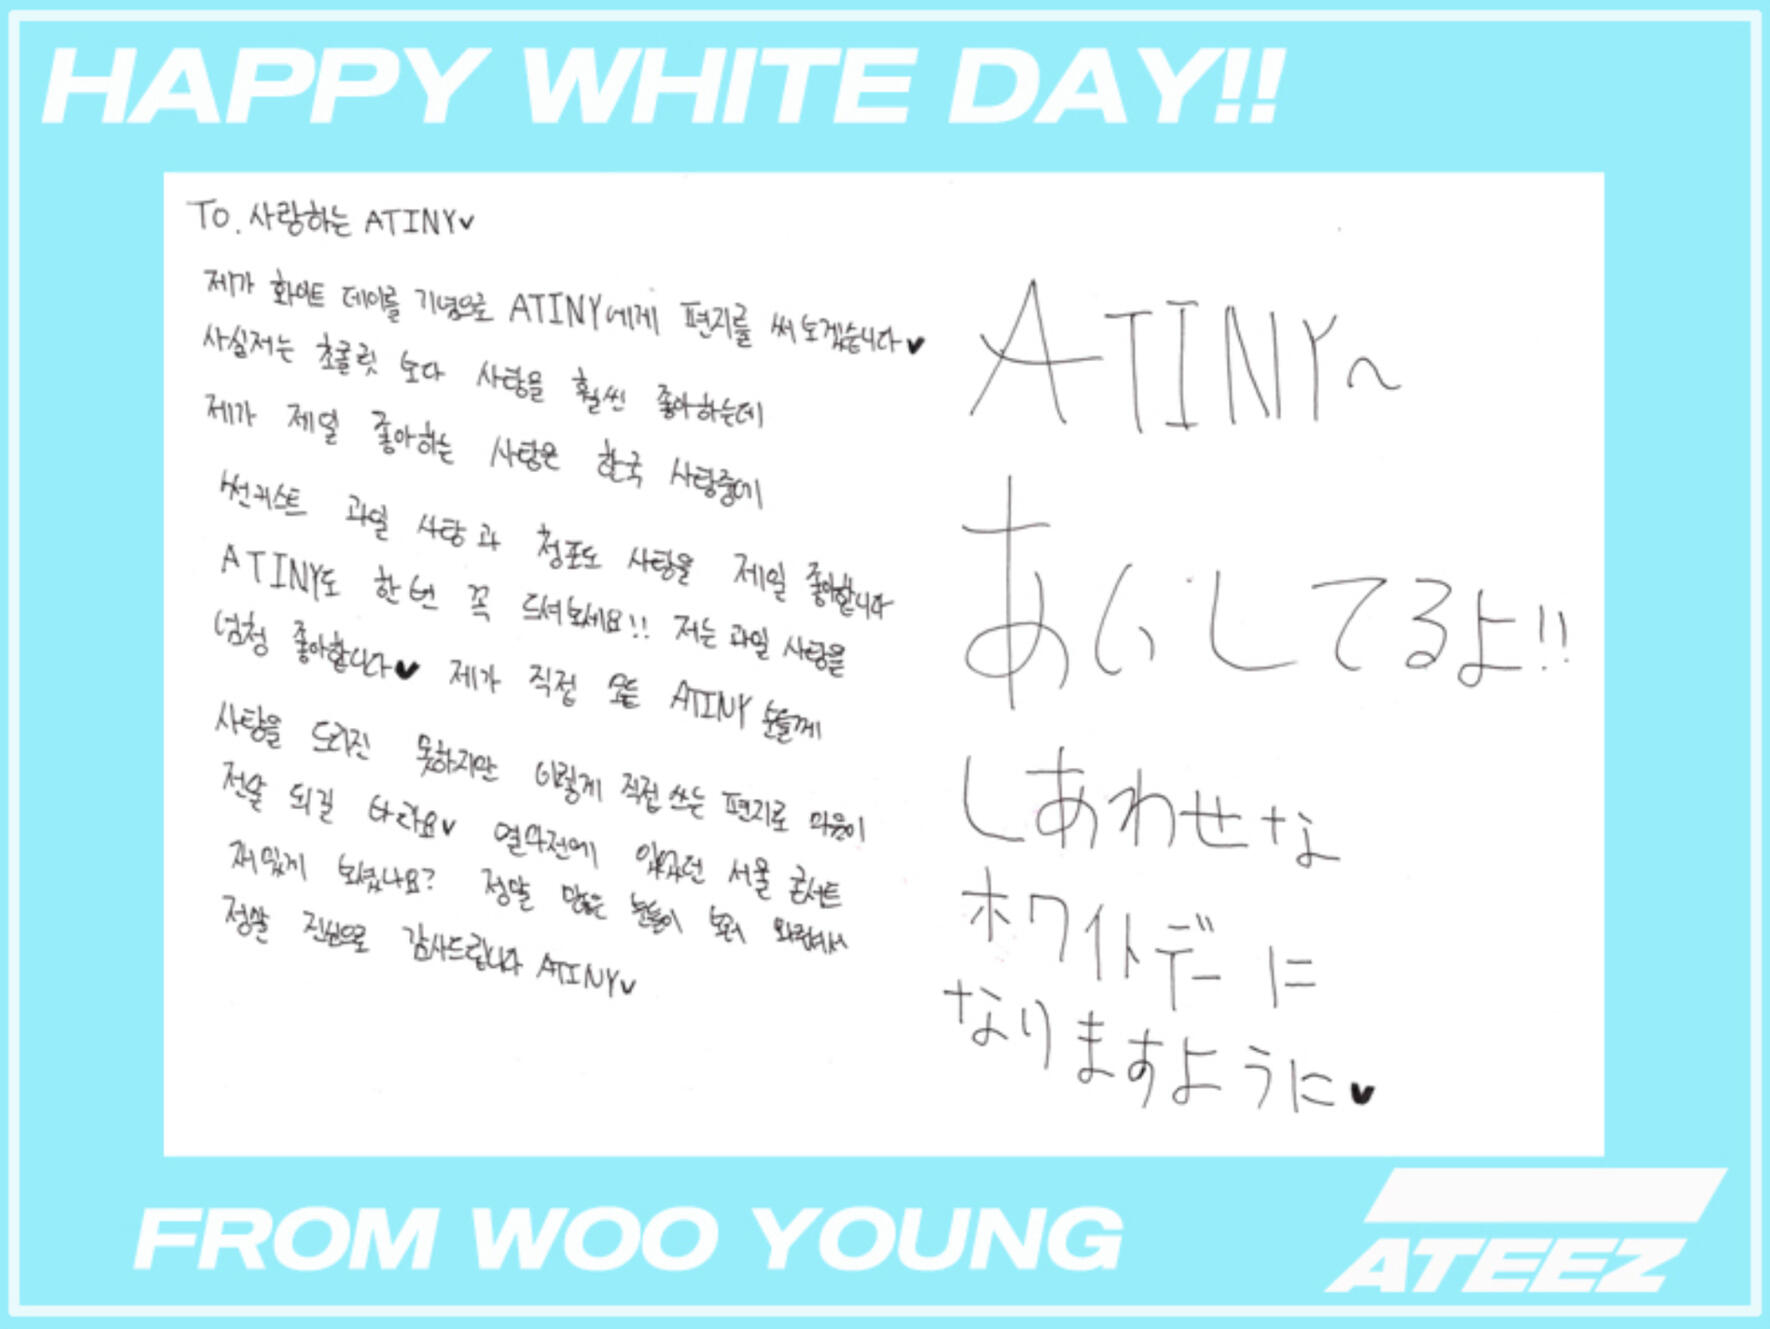 HAPPY WHITE DAY!!
TO. 사랑하는 ATINY♥
제가 화이트 데이를 기념으로 ATINY에게 편지를 써보겠습니다♥
사실저는 초콜릿 보다 사탕을 훨씬 좋아하는데
제가 제일 좋아하는 사탕은 한국 사탕중에
썬키스트 과일 사탕과 청포도 사탕을 제일 좋아합니다
ATINY도 한번 꼭 드셔보세요!! 저는 과일 사탕을
엄청 좋아합니다♥ 제가 직접 모든 ATINY 분들께
사탕을 드리진 못하지만 이렇게 직접 쓰는 편지로 마음이
전달 되길 바라요♥ 열마전에 있었던 서울 콘서트
재밌게 보셨나요? 정말 많은 분들이 보러 와주셔서
정말 진심으로 감사드립니다 ATINY♥
ATINY~
あいしてるよ!!
しあわせな
ホワイトデーに
なりますように♥
FROM WOO YOUNG
ATEEZ